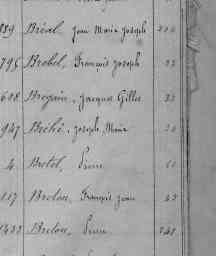 889 Bréal, Jean Marie Joseph
796 Brebel, François Joseph 33
608 Bregain, Jacques Gilles 33
947 Bréhé, Joseph Marie
4 Bretel, Pierre 11
117 Breton, François Jean 43
1433 Breton, Pierre 241